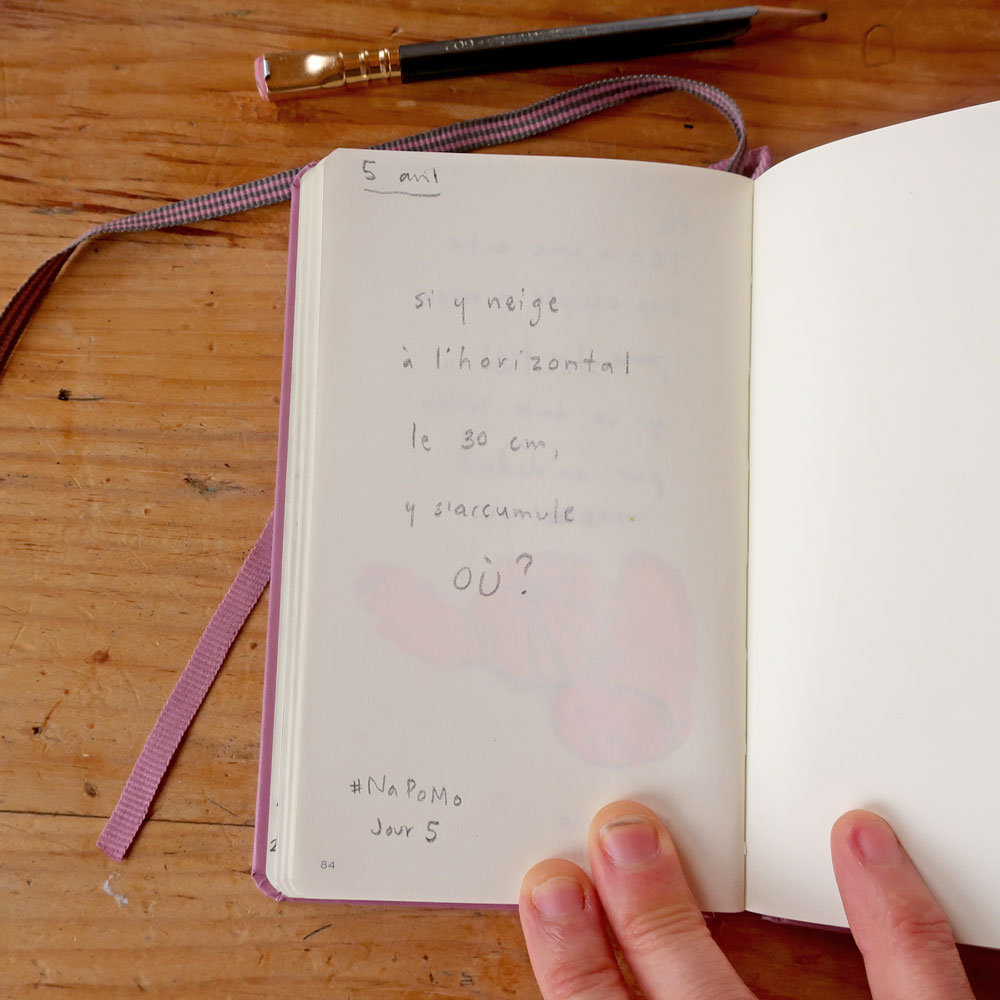 5 avril
si y neige
à l'horizontal
le 30 cm,
y s'accumule
OÙ?
#NaPoMo
Jour 5
84